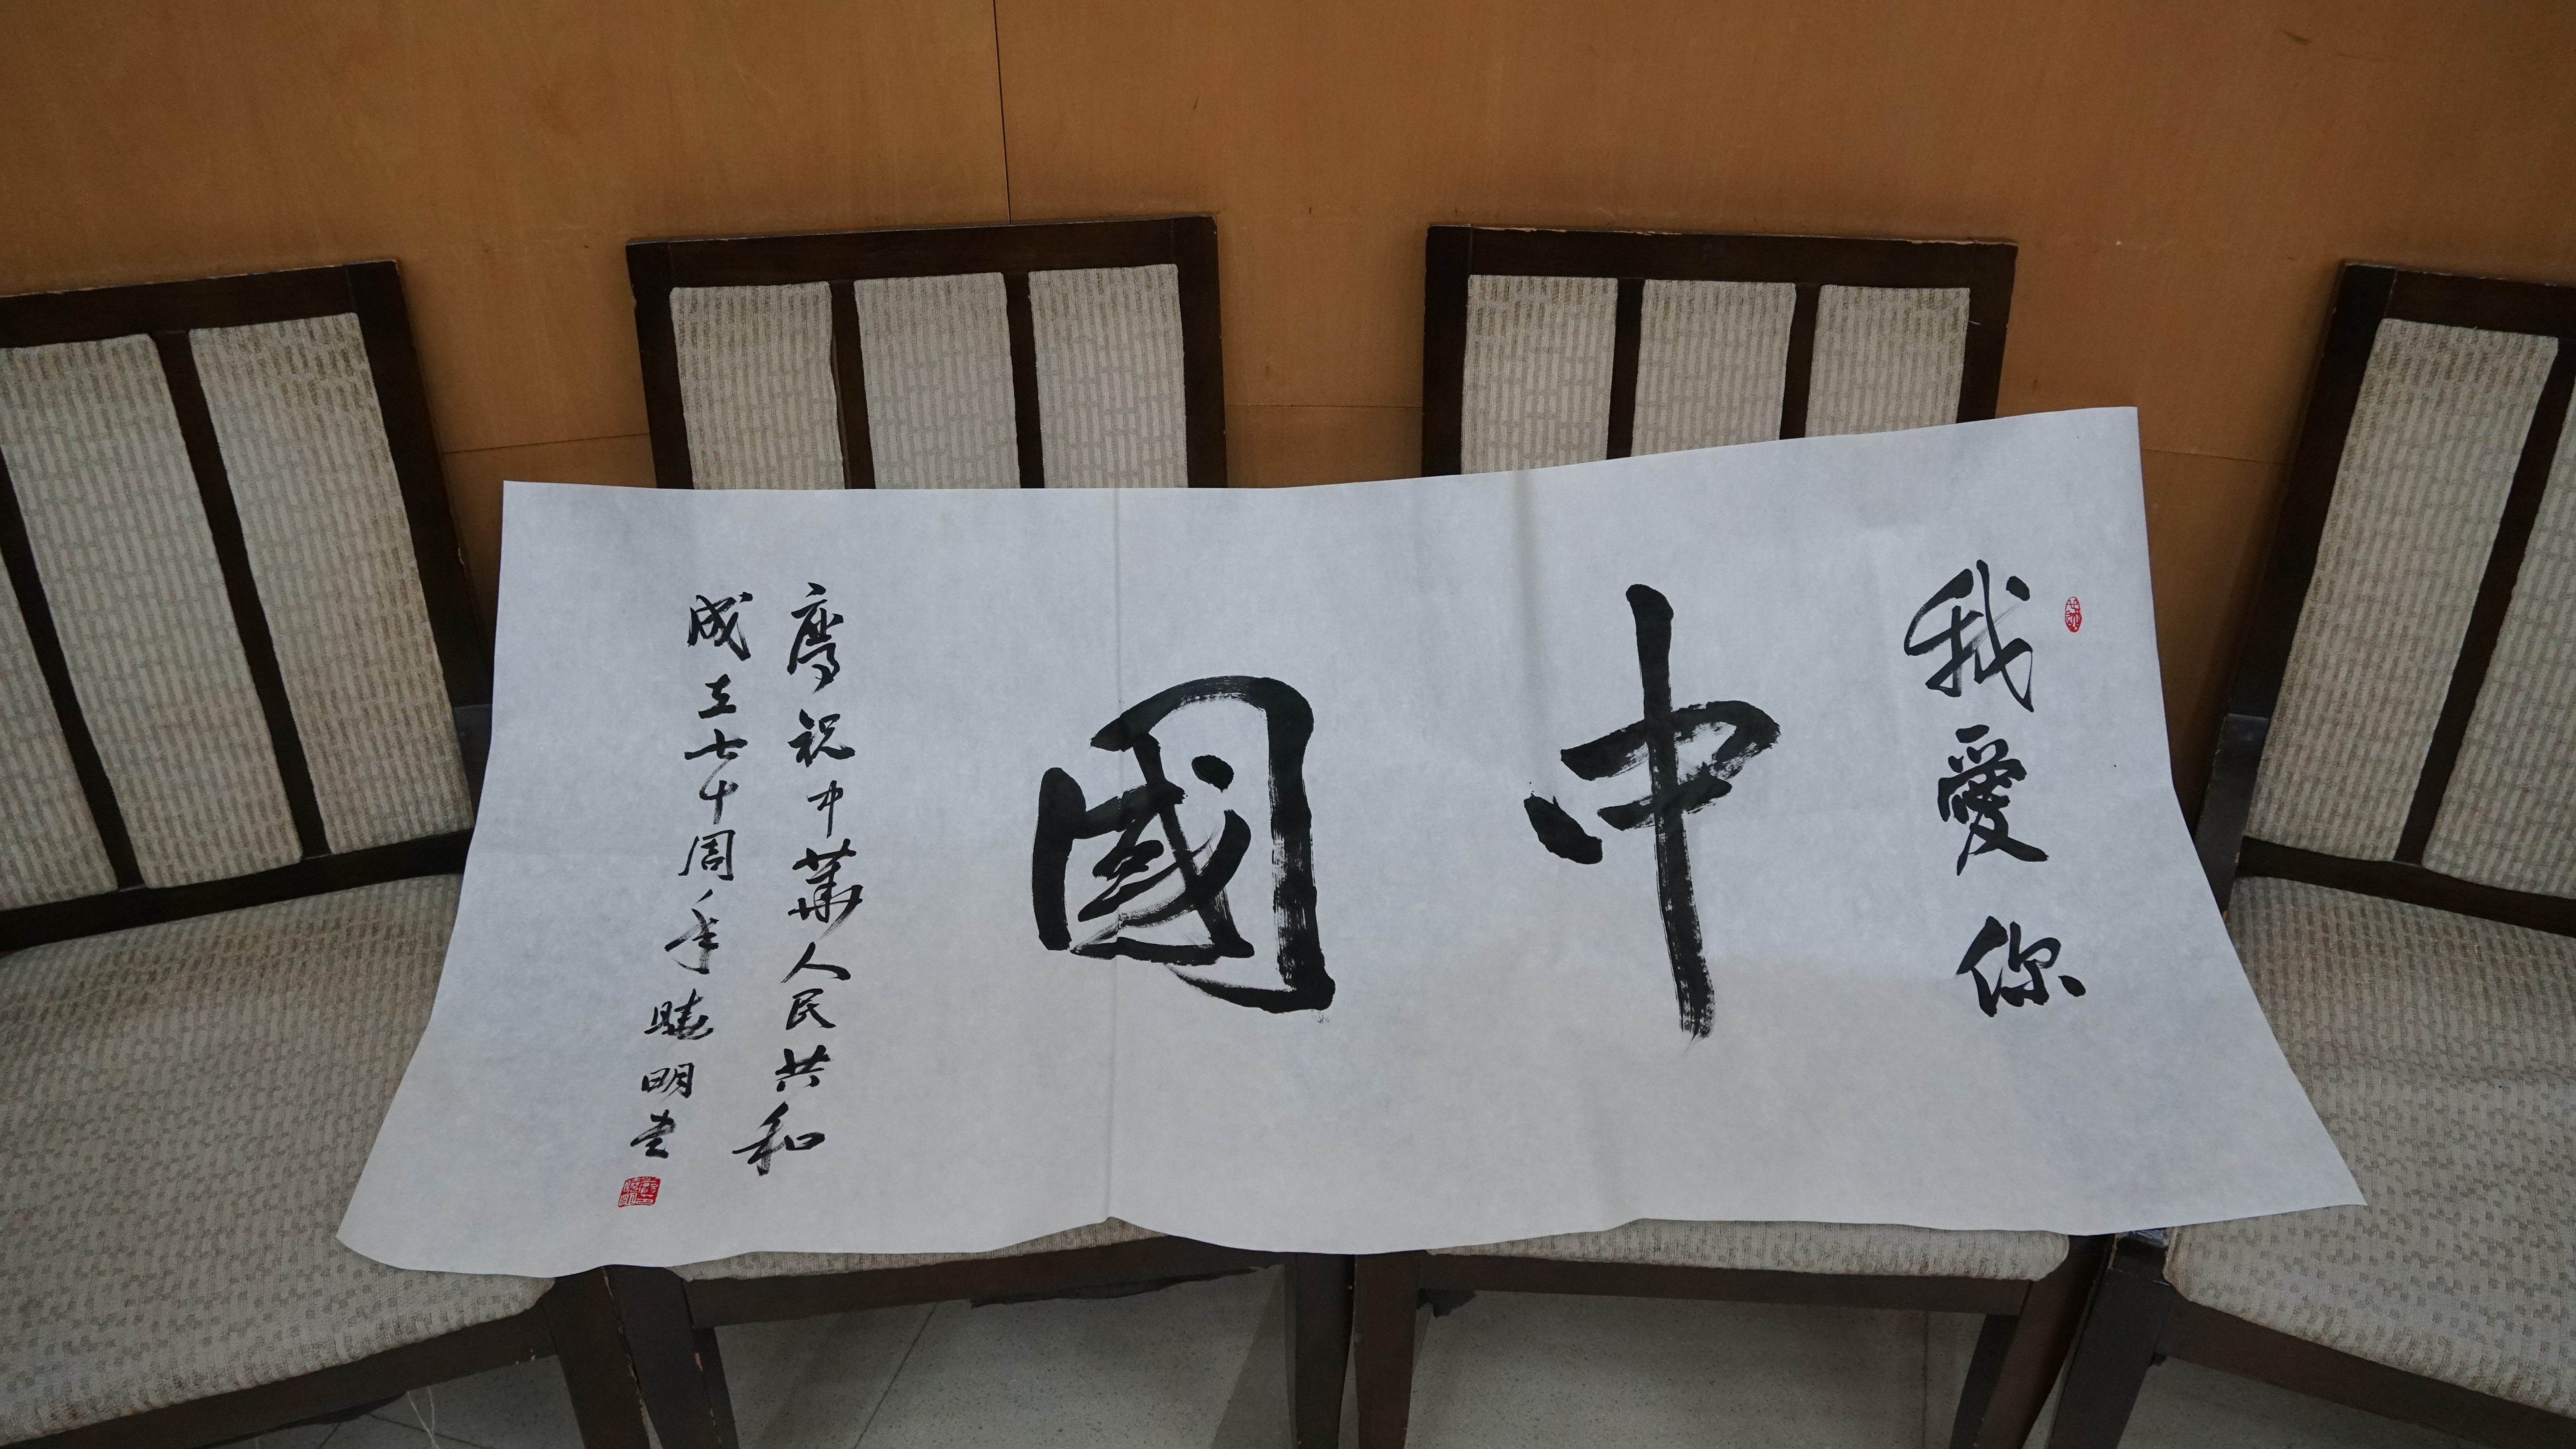 我愛你
中國
慶祝中華人民共和
成立七十周年曉明書